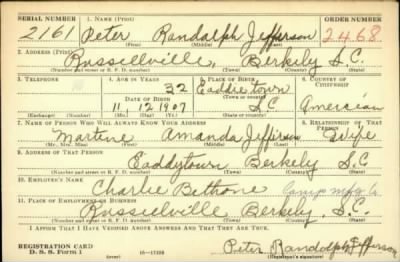 SERIAL NUMBER 1. NAME (Print) ORDER NUMBER
2161 Peter Randolph Jefferson 2468
(First) (Middle) (Last)
2. ADDRESS (Print)
Russellville, Berkely S.C.
(Number and street or R. F. D. number) (Town) (County) (State)
3. TELEPHONE 4. AGE IN YEARS 5. PLACE OF BIRTH 6. COUNTRY OF CITIZENSHIP
32 Eaddietown
DATE OF BIRTH (Town or county)
11/12 1907 S.C Amercian
(Exchange) (Number) (Mo.) (Day) (Yr.) (State or country)
7. NAME OF PERSON WHO WILL ALWAYS KNOW YOUR ADDRESS 8. RELATIONSHIP OF THAT PERSON
Amanda Jefferson Wife
(Mr., Mrs., Miss) (First) (Middle) (Last)
9. ADDRESS OF THAT PERSON
Eaddytown Berkely S.C
(Number and street or R. F. D. number) (Town) (County) (State)
10. EMPLOYER'S NAME
Charlie Bethone Camp Mfg Co
11. PLACE OF EMPLOYMENT OR BUSINESS
Russellville Berkely, S.C.
(Number and street or R. F. D. number) (Town) (County) (State)
I AFFIRM THAT I HAVE VERIFIED ABOVE ANSWERS AND THAT THEY ARE TRUE.
REGISTRATION CARD
D. S. S. Form 1 (over) Peter Randolph Jefferson
(Registrant's signature)